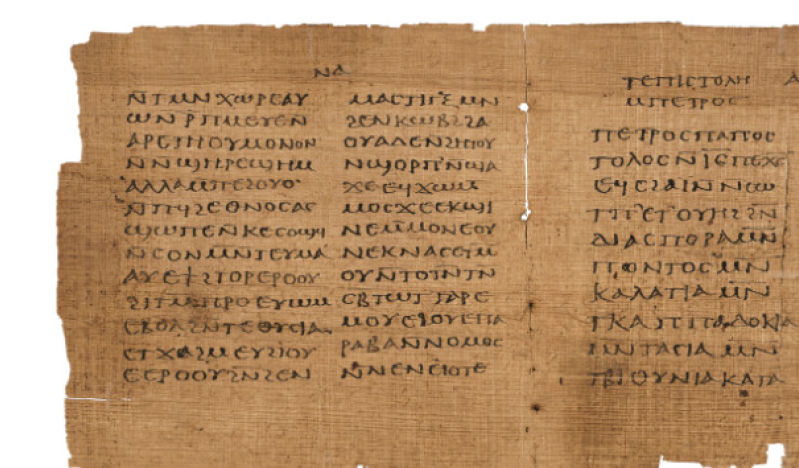 ⲛⲁ
ⲛ̄ⲧⲙⲛⲭⲱⲣⲉⲁⲩ
ⲱⲛⲣ̄ⲡⲙⲉⲩⲉⲛ̄
ⲁⲣⲉⲧⲏⲟⲩⲙⲟⲛⲟⲛ
ⲛ̄ⲛϣⲏⲣⲉϣⲏⲙ
ⲁⲗⲗⲁⲙ̄ⲡⲉϩⲟⲩⲟ
ⲛ̄ⲡϥϩⲉⲑⲛⲟⲥⲁⲥ
ϣⲱⲡⲉⲛ̄ⲕⲉⲥⲟϣϥ
ⲛ̄ⲥⲟⲛⲙⲛ̄ⲧⲉⲩⲙⲁ
ⲁⲩⲉϯϩⲧⲟⲣⲉⲣⲟⲟⲩ
ϩⲓⲧⲙ̄ⲡⲣ̄ⲣⲟⲉⲩⲱⲙ
ⲉⲃⲟⲗϩⲛⲧⲉⲑⲩⲥⲓⲁ
ⲉⲧϫⲁϩⲙⲉⲩϩⲓⲟⲩ
ⲉⲉⲣⲟⲟⲩϩⲛ̄ϩⲉⲛ
ⲙⲁⲥⲧⲓⲅⲝ̄ⲙⲛ
ϩⲉⲛⲕⲱⲃϩϩⲁ
ⲟⲩⲁⲇⲉⲛϩⲏⲧⲟⲩ
ⲛϣⲟⲣⲡⲛ̄ϣⲁ
ϫⲉⲉϥϫⲱⲙ̄
ⲙⲟⲥϫⲉⲉⲕϣⲓ
ⲛⲉⲙ̄ⲙⲟⲛⲉⲟⲩ
ⲛⲉⲕⲛⲁⲥⲉⲧⲙ̄
ⲟⲩⲛ̄ⲧⲟⲧⲛ̄ⲧⲛ
ⲥⲃⲧⲱⲧⲅⲁⲣⲉ
ⲙⲟⲩⲉϩⲟⲩⲉⲡⲁ
ⲣⲁⲃⲁⲛⲛⲟⲙⲟⲥ
ⲛ̄ⲛⲉⲛⲉⲓⲟⲧⲉ
ⲧⲉⲡⲓⲥⲧⲟⲗⲏ ⲁ
ⲙⲡⲉⲧⲣⲟⲥ
ⲡⲉⲧⲣⲟⲥⲡⲁⲡⲟⲥ
ⲧⲟⲗⲟⲥⲛ̄ⲓ̄ⲥ̄ⲡⲉⲭ̄ⲥ̄
ⲉϥⲥϩⲁⲓ̈ⲛ̄ⲛⲥⲱ
ⲧⲡⲉⲧⲟⲩⲏϩϩⲛ̄
ⲇⲓⲁⲥⲡⲟⲣⲁⲙⲛ̄
ⲡⲡⲟⲛⲧⲟⲥⲙⲛ̄
ⲕⲁⲗⲁⲧⲓⲁⲙⲛ̄
ⲧⲕⲁⲡⲡⲁⲇⲟⲕⲓⲁ
ⲙⲛⲧⲁⲥⲓⲁⲙⲛ̄
ⲧⲃⲓⲑⲩⲛⲓⲁⲕⲁⲧⲁ